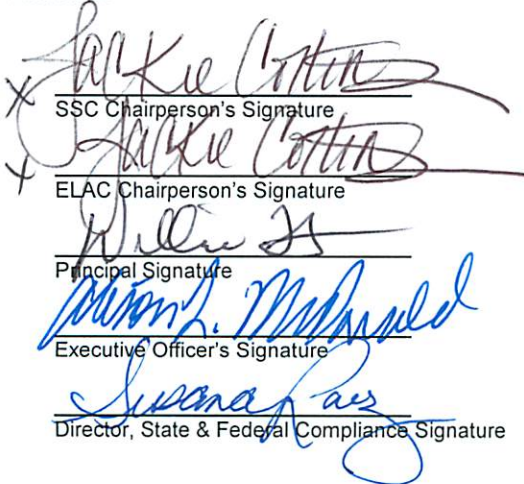 x Jackie
SSC Chairperson's Signature
x Jackie
ELAC Chairperson's Signature
Willie
Principal Signature
L. McDonald
Executive Officer's Signature
Susana
Director, State & Federal Compliance Signature